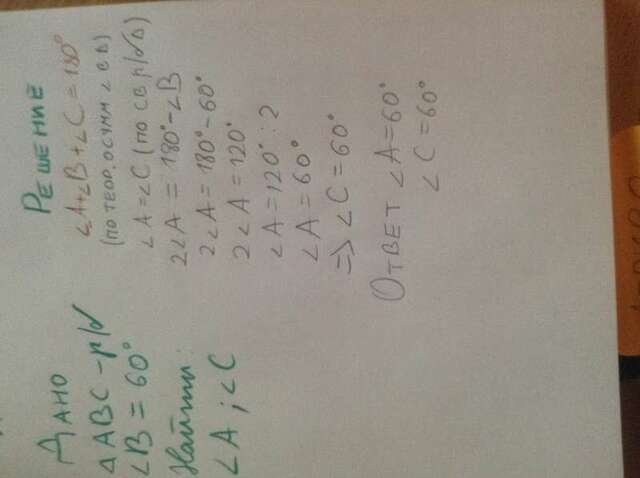 Дано
△ABC – р/б
∠B = 60°
Найти:
∠A ; ∠C
Решение
∠A+∠B+∠C = 180°
(по теор. о сумм ∠ в △)
∠A = ∠C (по св р/б △)
2∠A = 180° – ∠B
2∠A = 180° – 60°
2∠A = 120°
∠A = 120° : 2
∠A = 60°
=> ∠C = 60°
Ответ ∠A = 60°
∠C = 60°